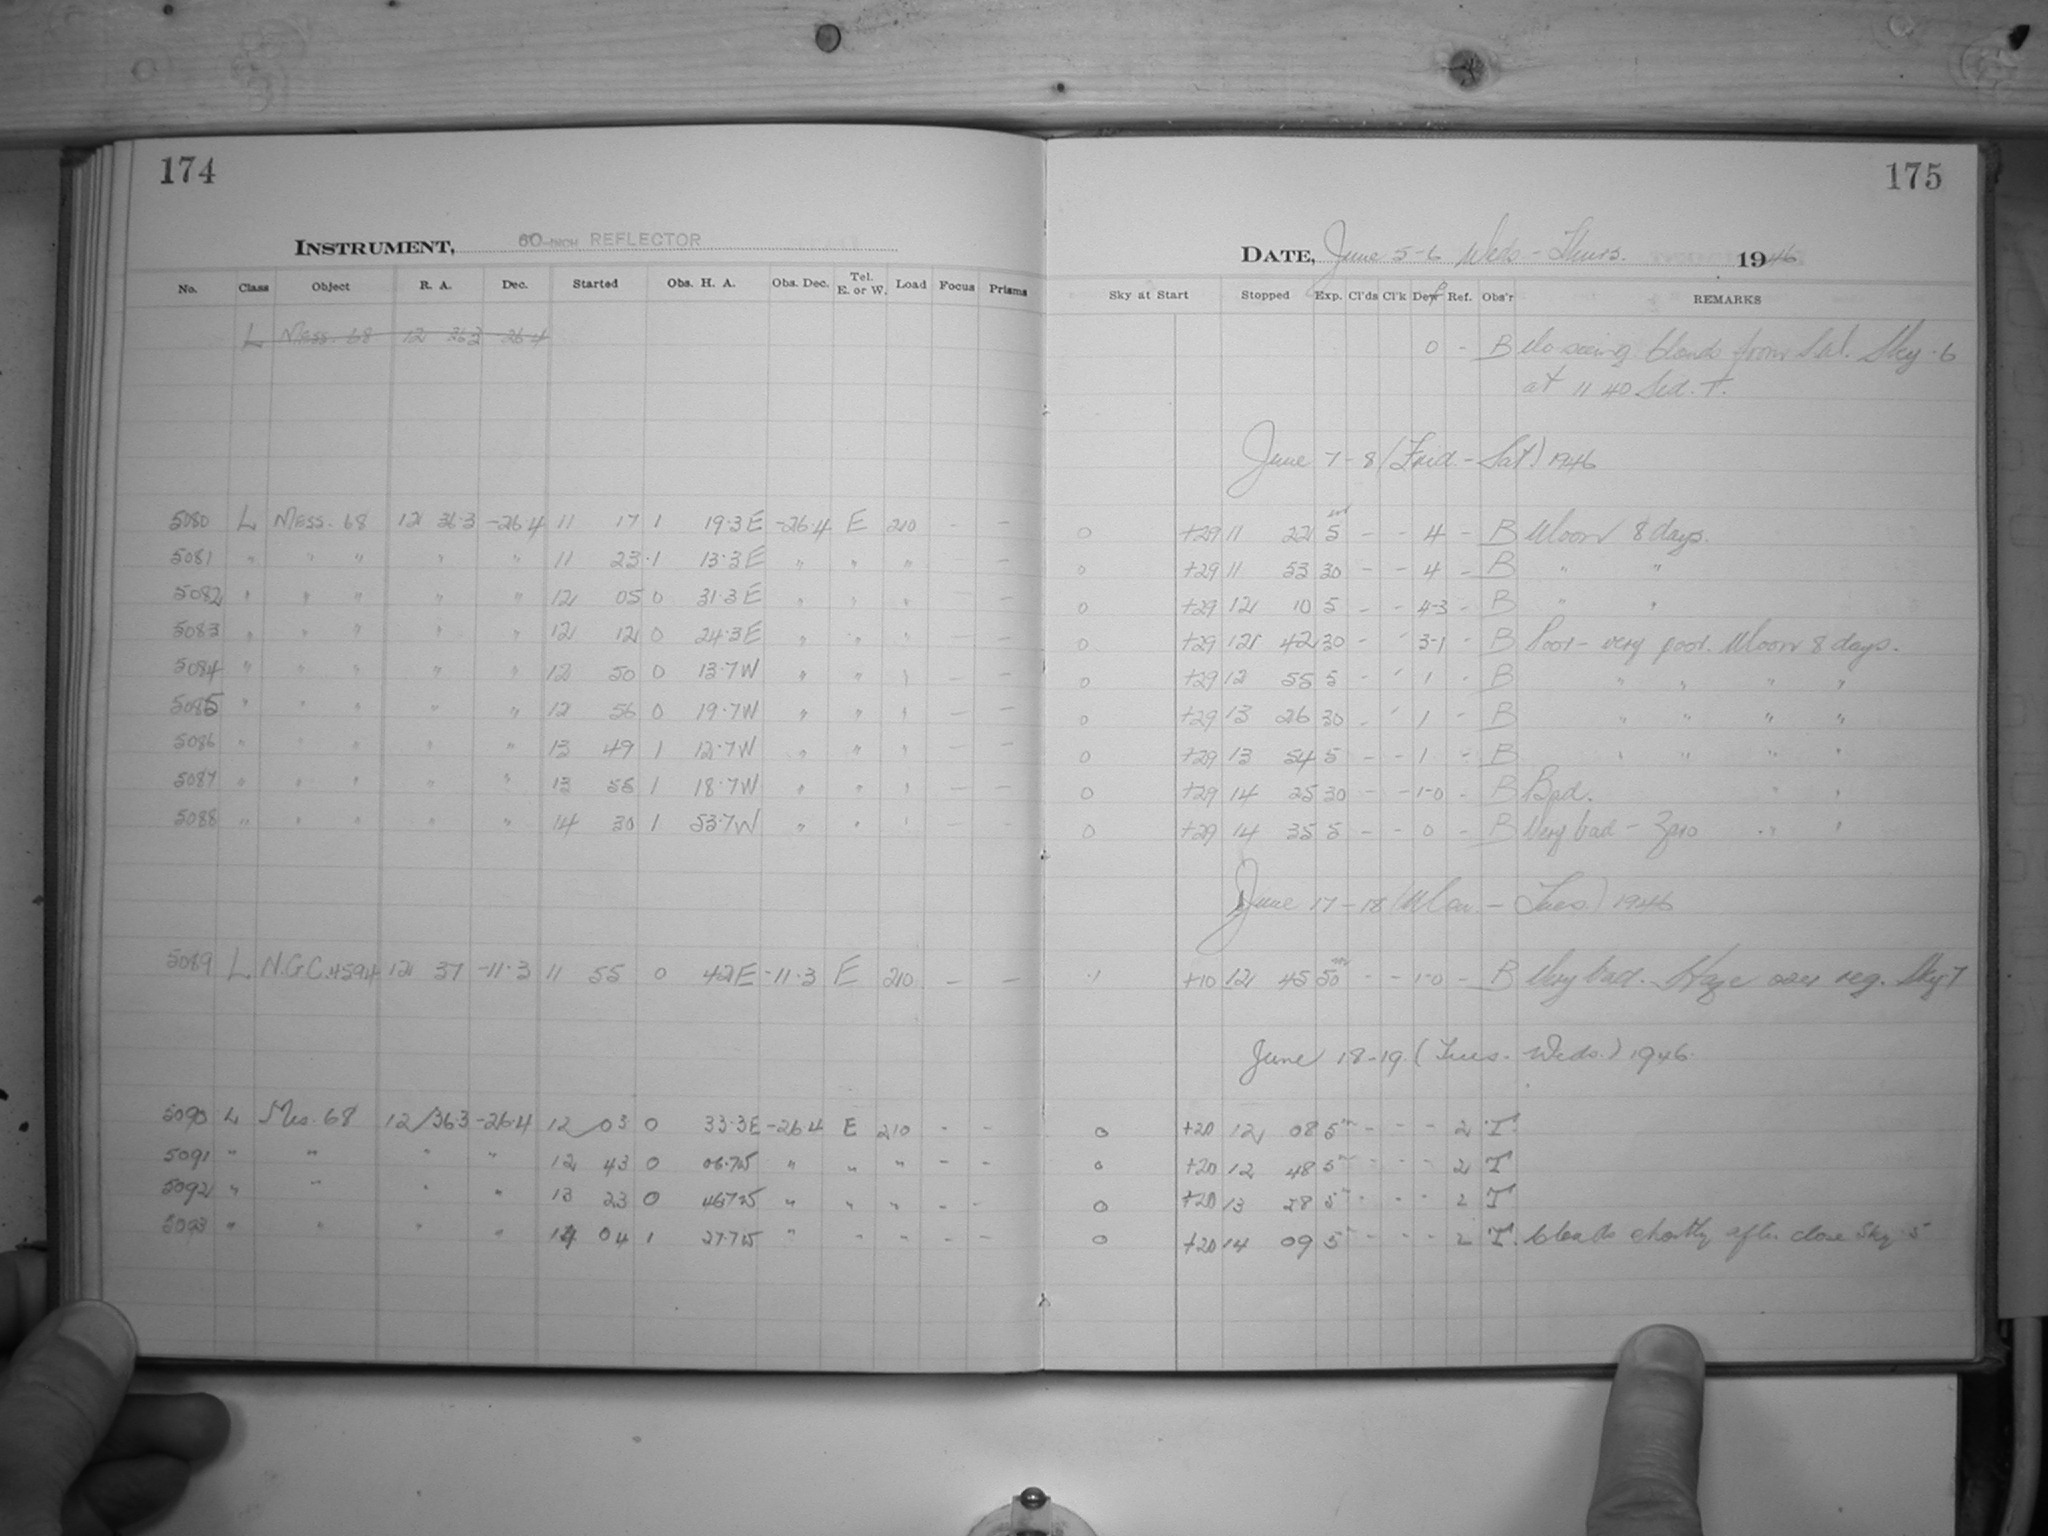 174
INSTRUMENT, 60-INCH REFLECTOR
No. Class Object R. A. Dec. Started Obs. H. A. Obs. Dec. Tel. E. or W. Load Focus Prisms
L Mess. 68 12 36.3 -26.4
5080 L Mess. 68 12 36.3 -26.4 11 17 1 19.3 E -26.4 E 210 - -
5081 " " " " " 11 23 1 13.3 E " " " -
5082 " " " " " 12 05 0 31.3 E " " " - -
5083 " " " " " 12 12 0 24.3 E " " " - -
5084 " " " " " 12 50 0 13.7 W " " " - -
5085 " " " " " 12 56 0 19.7 W " " " - -
5086 " " " " " 13 49 1 12.7 W " " " - -
5087 " " " " " 13 55 1 18.7 W " " " - -
5088 " " " " " 14 30 1 53.7 W " " " - -
5089 L N.G.C. 4594 12 37 -11.3 11 55 0 42 E -11.3 E 210 - -
5090 L Mes. 68 12 36.3 -26.4 12 03 0 33.3 E -26.4 E 210 - -
5091 " " " " 12 43 0 06.7 W " " " - -
5092 " " " " 13 23 0 46.7 W " " " - -
5093 " " " " 14 04 1 27.7 W " " " - -
175
DATE, June 5-6 Weds - Thurs. 1946
Sky at Start Stopped Exp. Cl'ds Cl'k Def Ref. Obs'r REMARKS
0 - B No seeing Clouds from S.W. Sky .6
at 11 40 Sid. T.
June 7-8 (Frid. - Sat) 1946
0 +29 11 22 5 - - 4 - B Moon 8 days.
0 +29 11 53 30 - - 4 - B " "
0 +29 12 10 5 - - 4-3 - B " "
0 +29 12 42 30 - ' 3-1 - B Poor - very poor. Moon 8 days.
0 +29 12 55 5 - ' 1 - B " " " "
0 +29 13 26 30 - ' 1 - B " " " "
0 +29 13 54 5 - - 1 - B " " " "
0 +29 14 25 30 - - 1-0 - B Bad. " "
0 +29 14 35 5 - - 0 - B Very bad - Zero " "
June 17-18 (Mon - Tues) 1946
.1 +10 12 45 50 - - 1-0 - B Very bad. - Haze over reg. Sky 7
June 18-19. (Tues. Weds.) 1946.
0 +20 12 08 5 - - - 2 T.
0 +20 12 48 5 - - - 2 T
0 +20 13 28 5 - - - 2 T
0 +20 14 09 5 - - - 2 T. Clouds shortly aft. close Sky 5